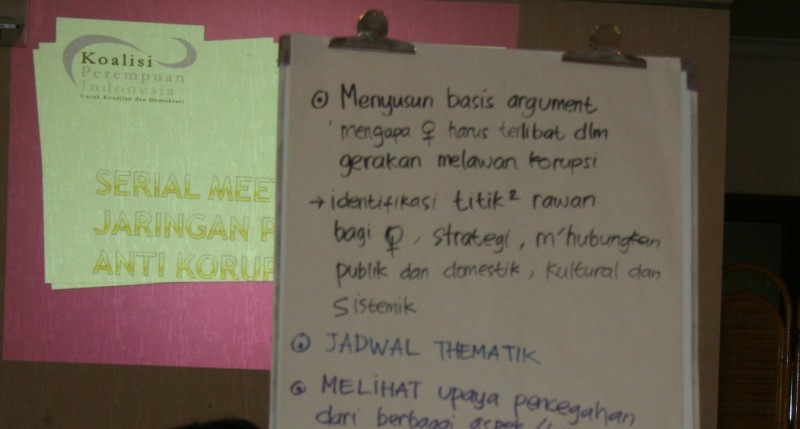 Koalisi
Perempuan
Indonesia
Untuk Keadilan dan Demokrasi
SERIAL MEE
JARINGAN P
ANTI KORUP
⊙ Menyusun basis argument
mengapa ♀ harus terlibat dlm
gerakan melawan korupsi
→ identifikasi titik² rawan
bagi ♀, strategi, m'hubungkan
publik dan domestik, kultural dan
sistemik
⊙ JADWAL THEMATIK
⊙ MELIHAT upaya pencegahan
dari berbagai aspek